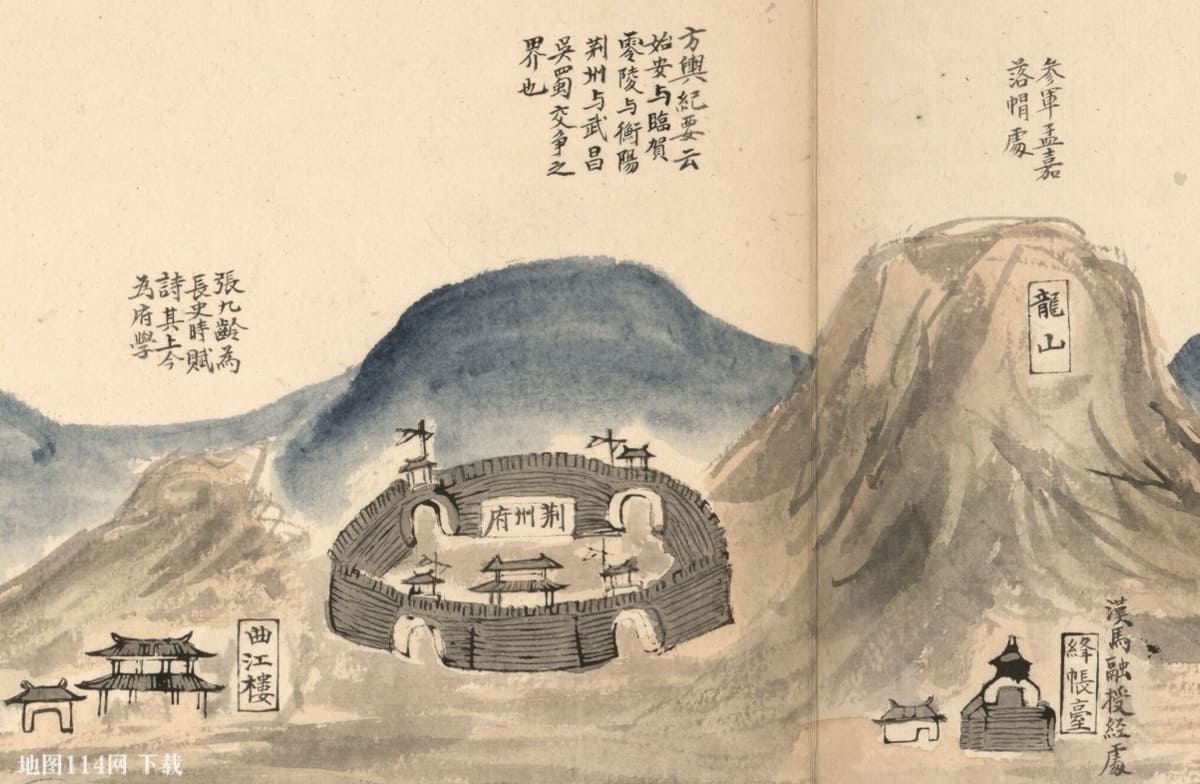 参軍孟嘉
落帽處
龍山
漢馬融授經處
絳帳臺
方輿紀要云
始安与臨賀
零陵与衡陽
荆州与武昌
吳蜀交争之
界也
荆州府
張九齡為
長史時賦
詩其上今
為府學
曲江樓
地图114网 下载